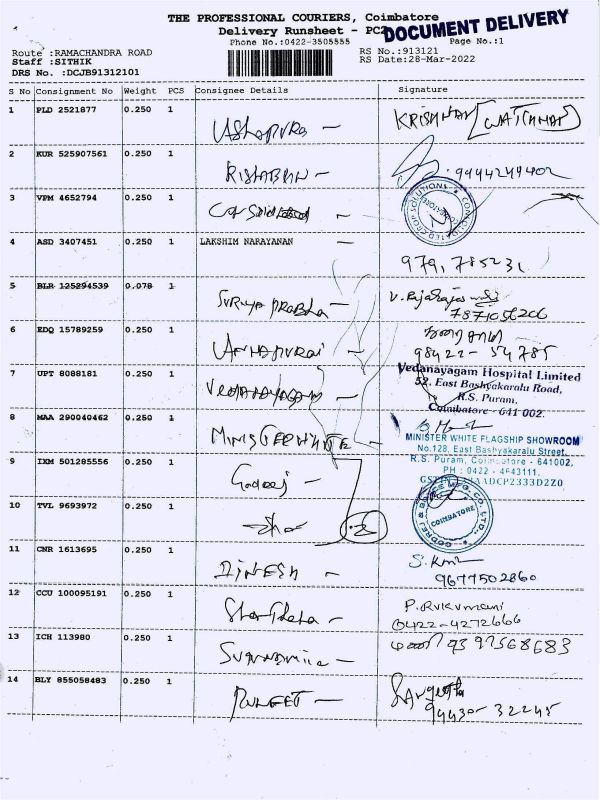 THE PROFESSIONAL COURIERS, Coimbatore
DOCUMENT DELIVERY
Delivery Runsheet - PC2
Phone No.:0422-3505555
Page No.:1
Route :RAMACHANDRA ROAD
RS No.:913121
Staff :SITHIK
RS Date:28-Mar-2022
DRS No. :DCJB91312101
S No Consignment No Weight PCS Consignee Details Signature
1 PLD 2521877 0.250 1
KRISHNAN [WATCHMAN]
2 KUR 525907561 0.250 1
9994249402
RISHABHN -
3 VPM 4652794 0.250 1
4 ASD 3407451 0.250 1 LAKSHIM NARAYANAN -
979,785231
5 BLR 125294539 0.078 1
SURIYA PRABHA -
7871056206
6 EDQ 15789259 0.250 1
98422-54785
7 UPT 8088181 0.250 1
Vedanayagam Hospital Limited
52, East Bashyakaralu Road,
R.S. Puram,
Coimbatore - 641 002.
VEDANAYAGAM -
8 MAA 290040462 0.250 1
MINISTER WHITE -
MINISTER WHITE FLAGSHIP SHOWROOM
No.128, East Bashyakaralu Street,
R.S. Puram, Coimbatore - 641002,
PH : 0422 - 4543111.
9 IXM 501285556 0.250 1
Godrej -
10 TVL 9693972 0.250 1
COIMBATORE
11 CNR 1613695 0.250 1
DINESH -
S. Kml
9677502860
12 CCU 100095191 0.250 1
P. RUKUMANI
0422-4272666
13 ICH 113980 0.250 1
93 97568683
14 BLY 855058483 0.250 1
PUNEET -
Sangeetha
94430-32245